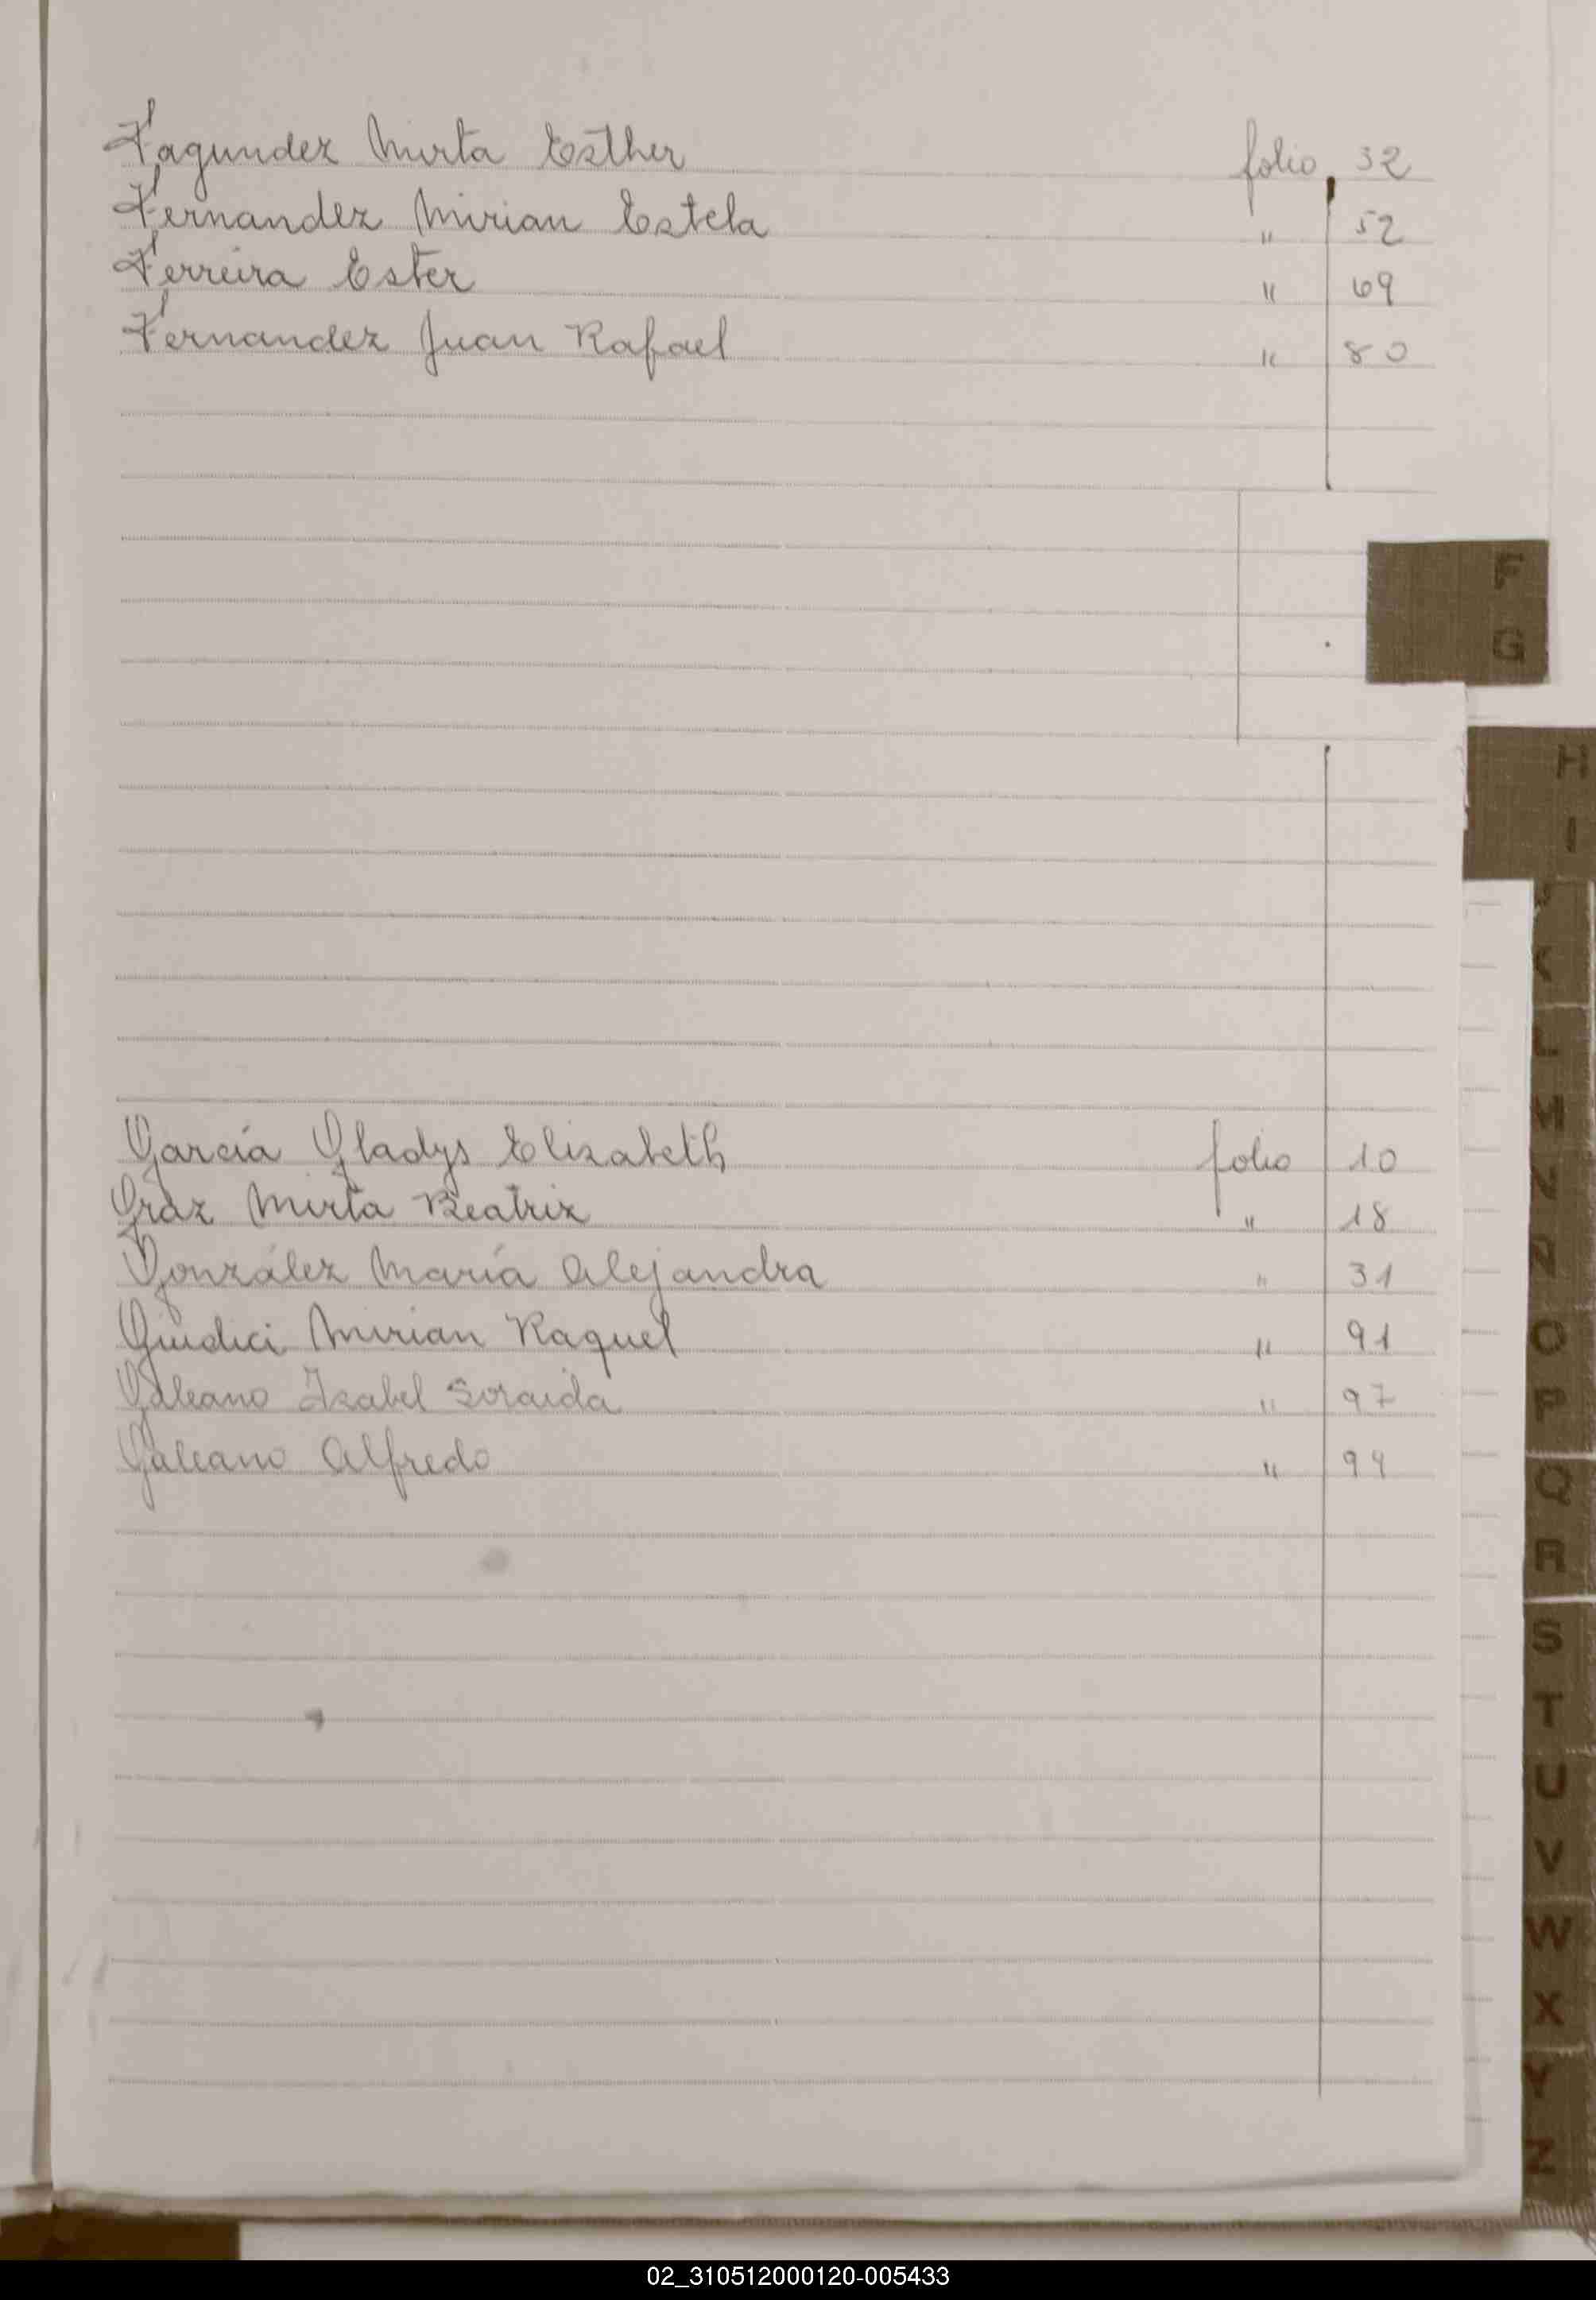 Fagundez Mirta Esther folio 32
Fernandez Mirian Estela " 52
Ferreira Ester " 69
Fernandez Juan Rafael " 80
F
G
H
I
J
K
L
M
N
Ñ
O
P
Q
R
S
T
U
V
W
X
Y
Z
García Gladys Elizabeth folio 10
Graz Mirta Beatriz " 18
González María Alejandra " 31
Giudici Mirian Raquel " 91
Galeano Izabel Soraida " 97
Galeano Alfredo " 94
02_310512000120-005433